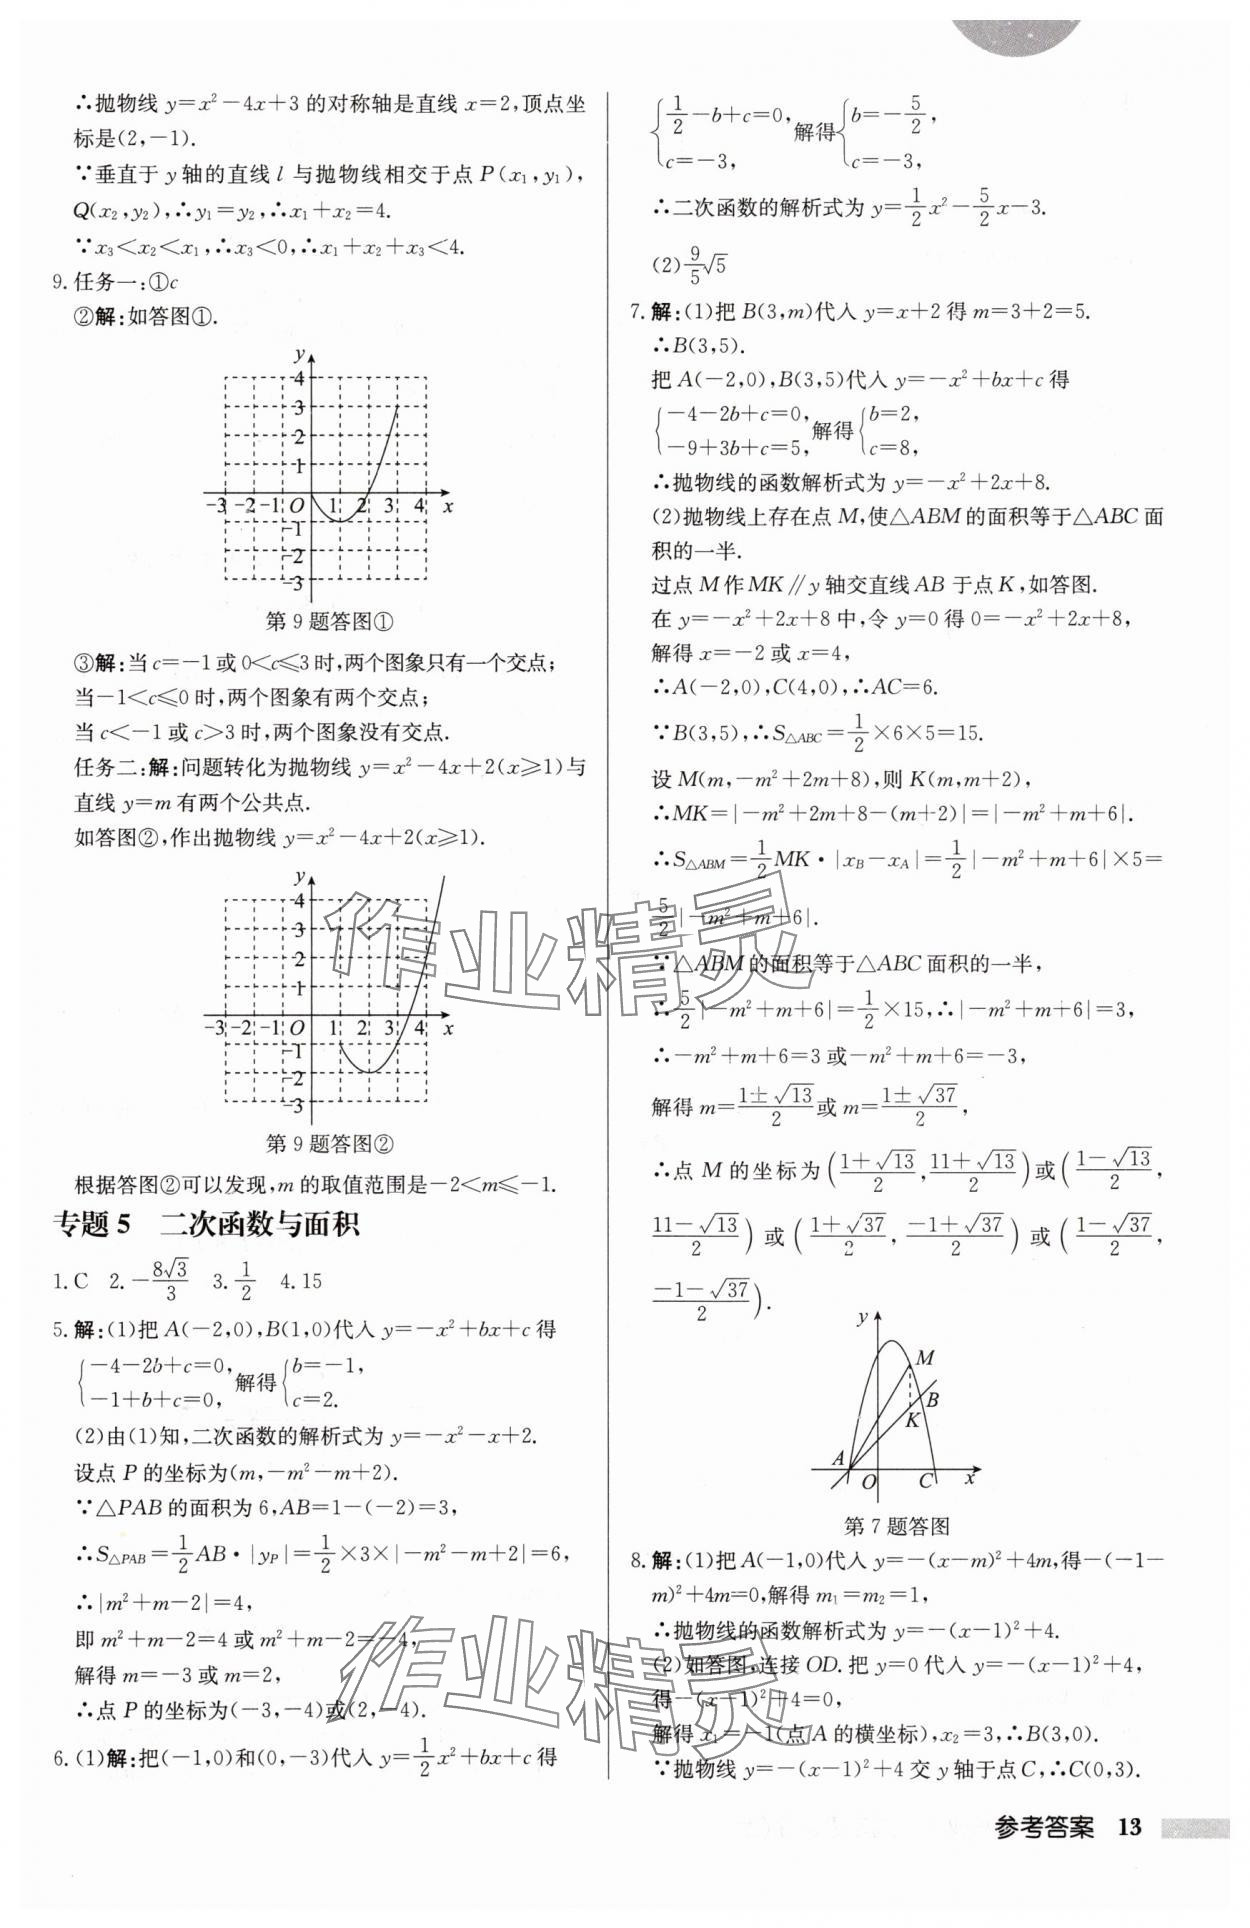 ∴抛物线 y=x²-4x+3 的对称轴是直线 x=2,顶点坐
标是(2,-1).
∵垂直于 y 轴的直线 l 与抛物线相交于点 P(x₁,y₁),
Q(x₂,y₂),∴y₁=y₂,∴x₁+x₂=4.
∵x₃<x₂<x₁,∴x₃<0,∴x₁+x₂+x₃<4.
9. 任务一:①c
②解:如答图①.
y
4
3
2
1
-3 -2 -1 O 1 2 3 4 x
-1
-2
-3
第 9 题答图①
③解:当 c=-1 或 0<c≤3 时,两个图象只有一个交点;
当-1<c≤0 时,两个图象有两个交点;
当 c<-1 或 c>3 时,两个图象没有交点.
任务二:解:问题转化为抛物线 y=x²-4x+2(x≥1)与
直线 y=m 有两个公共点.
如答图②,作出抛物线 y=x²-4x+2(x≥1).
y
4
3
2
1
-3 -2 -1 O 1 2 3 4 x
-1
-2
-3
第 9 题答图②
根据答图②可以发现,m 的取值范围是-2<m≤-1.
专题 5 二次函数与面积
1. C 2. -8√3/3 3. 1/2 4. 15
5. 解:(1)把 A(-2,0),B(1,0)代入 y=-x²+bx+c 得
{-4-2b+c=0, -1+b+c=0, 解得{b=-1, c=2.
(2)由(1)知,二次函数的解析式为 y=-x²-x+2.
设点 P 的坐标为(m,-m²-m+2).
∵△PAB 的面积为 6,AB=1-(-2)=3,
∴S△PAB=1/2 AB·|yP|=1/2×3×|-m²-m+2|=6,
∴|m²+m-2|=4,
即 m²+m-2=4 或 m²+m-2=-4,
解得 m=-3 或 m=2,
∴点 P 的坐标为(-3,-4)或(2,-4).
6. (1)解:把(-1,0)和(0,-3)代入 y=1/2 x²+bx+c 得
{1/2-b+c=0, c=-3, 解得{b=-5/2, c=-3,
∴二次函数的解析式为 y=1/2 x²-5/2 x-3.
(2) 9/5 √5
7. 解:(1)把 B(3,m)代入 y=x+2 得 m=3+2=5.
∴B(3,5).
把 A(-2,0),B(3,5)代入 y=-x²+bx+c 得
{-4-2b+c=0, -9+3b+c=5, 解得{b=2, c=8,
∴抛物线的函数解析式为 y=-x²+2x+8.
(2)抛物线上存在点 M,使△ABM 的面积等于△ABC 面
积的一半.
过点 M 作 MK∥y 轴交直线 AB 于点 K,如答图.
在 y=-x²+2x+8 中,令 y=0 得 0=-x²+2x+8,
解得 x=-2 或 x=4,
∴A(-2,0),C(4,0),∴AC=6.
∵B(3,5),∴S△ABC=1/2×6×5=15.
设 M(m,-m²+2m+8),则 K(m,m+2),
∴MK=|-m²+2m+8-(m+2)|=|-m²+m+6|.
∴S△ABM=1/2 MK·|xB-xA|=1/2|-m²+m+6|×5=
5/2|-m²+m+6|.
∵△ABM 的面积等于△ABC 面积的一半,
∴5/2|-m²+m+6|=1/2×15,∴|-m²+m+6|=3,
∴-m²+m+6=3 或-m²+m+6=-3,
解得 m=(1±√13)/2 或 m=(1±√37)/2,
∴点 M 的坐标为((1+√13)/2,(11+√13)/2)或((1-√13)/2,
(11-√13)/2)或((1+√37)/2,(-1+√37)/2)或((1-√37)/2,
(-1-√37)/2).
y
M
B
K
A
O
C
x
第 7 题答图
8. 解:(1)把 A(-1,0)代入 y=-(x-m)²+4m,得-(-1-
m)²+4m=0,解得 m₁=m₂=1,
∴抛物线的函数解析式为 y=-(x-1)²+4.
(2)如答图,连接 OD. 把 y=0 代入 y=-(x-1)²+4,
得-(x-1)²+4=0,
解得 x₁=-1(点 A 的横坐标),x₂=3,∴B(3,0).
∵抛物线 y=-(x-1)²+4 交 y 轴于点 C,∴C(0,3).
作业精灵
作业精灵
参考答案 13